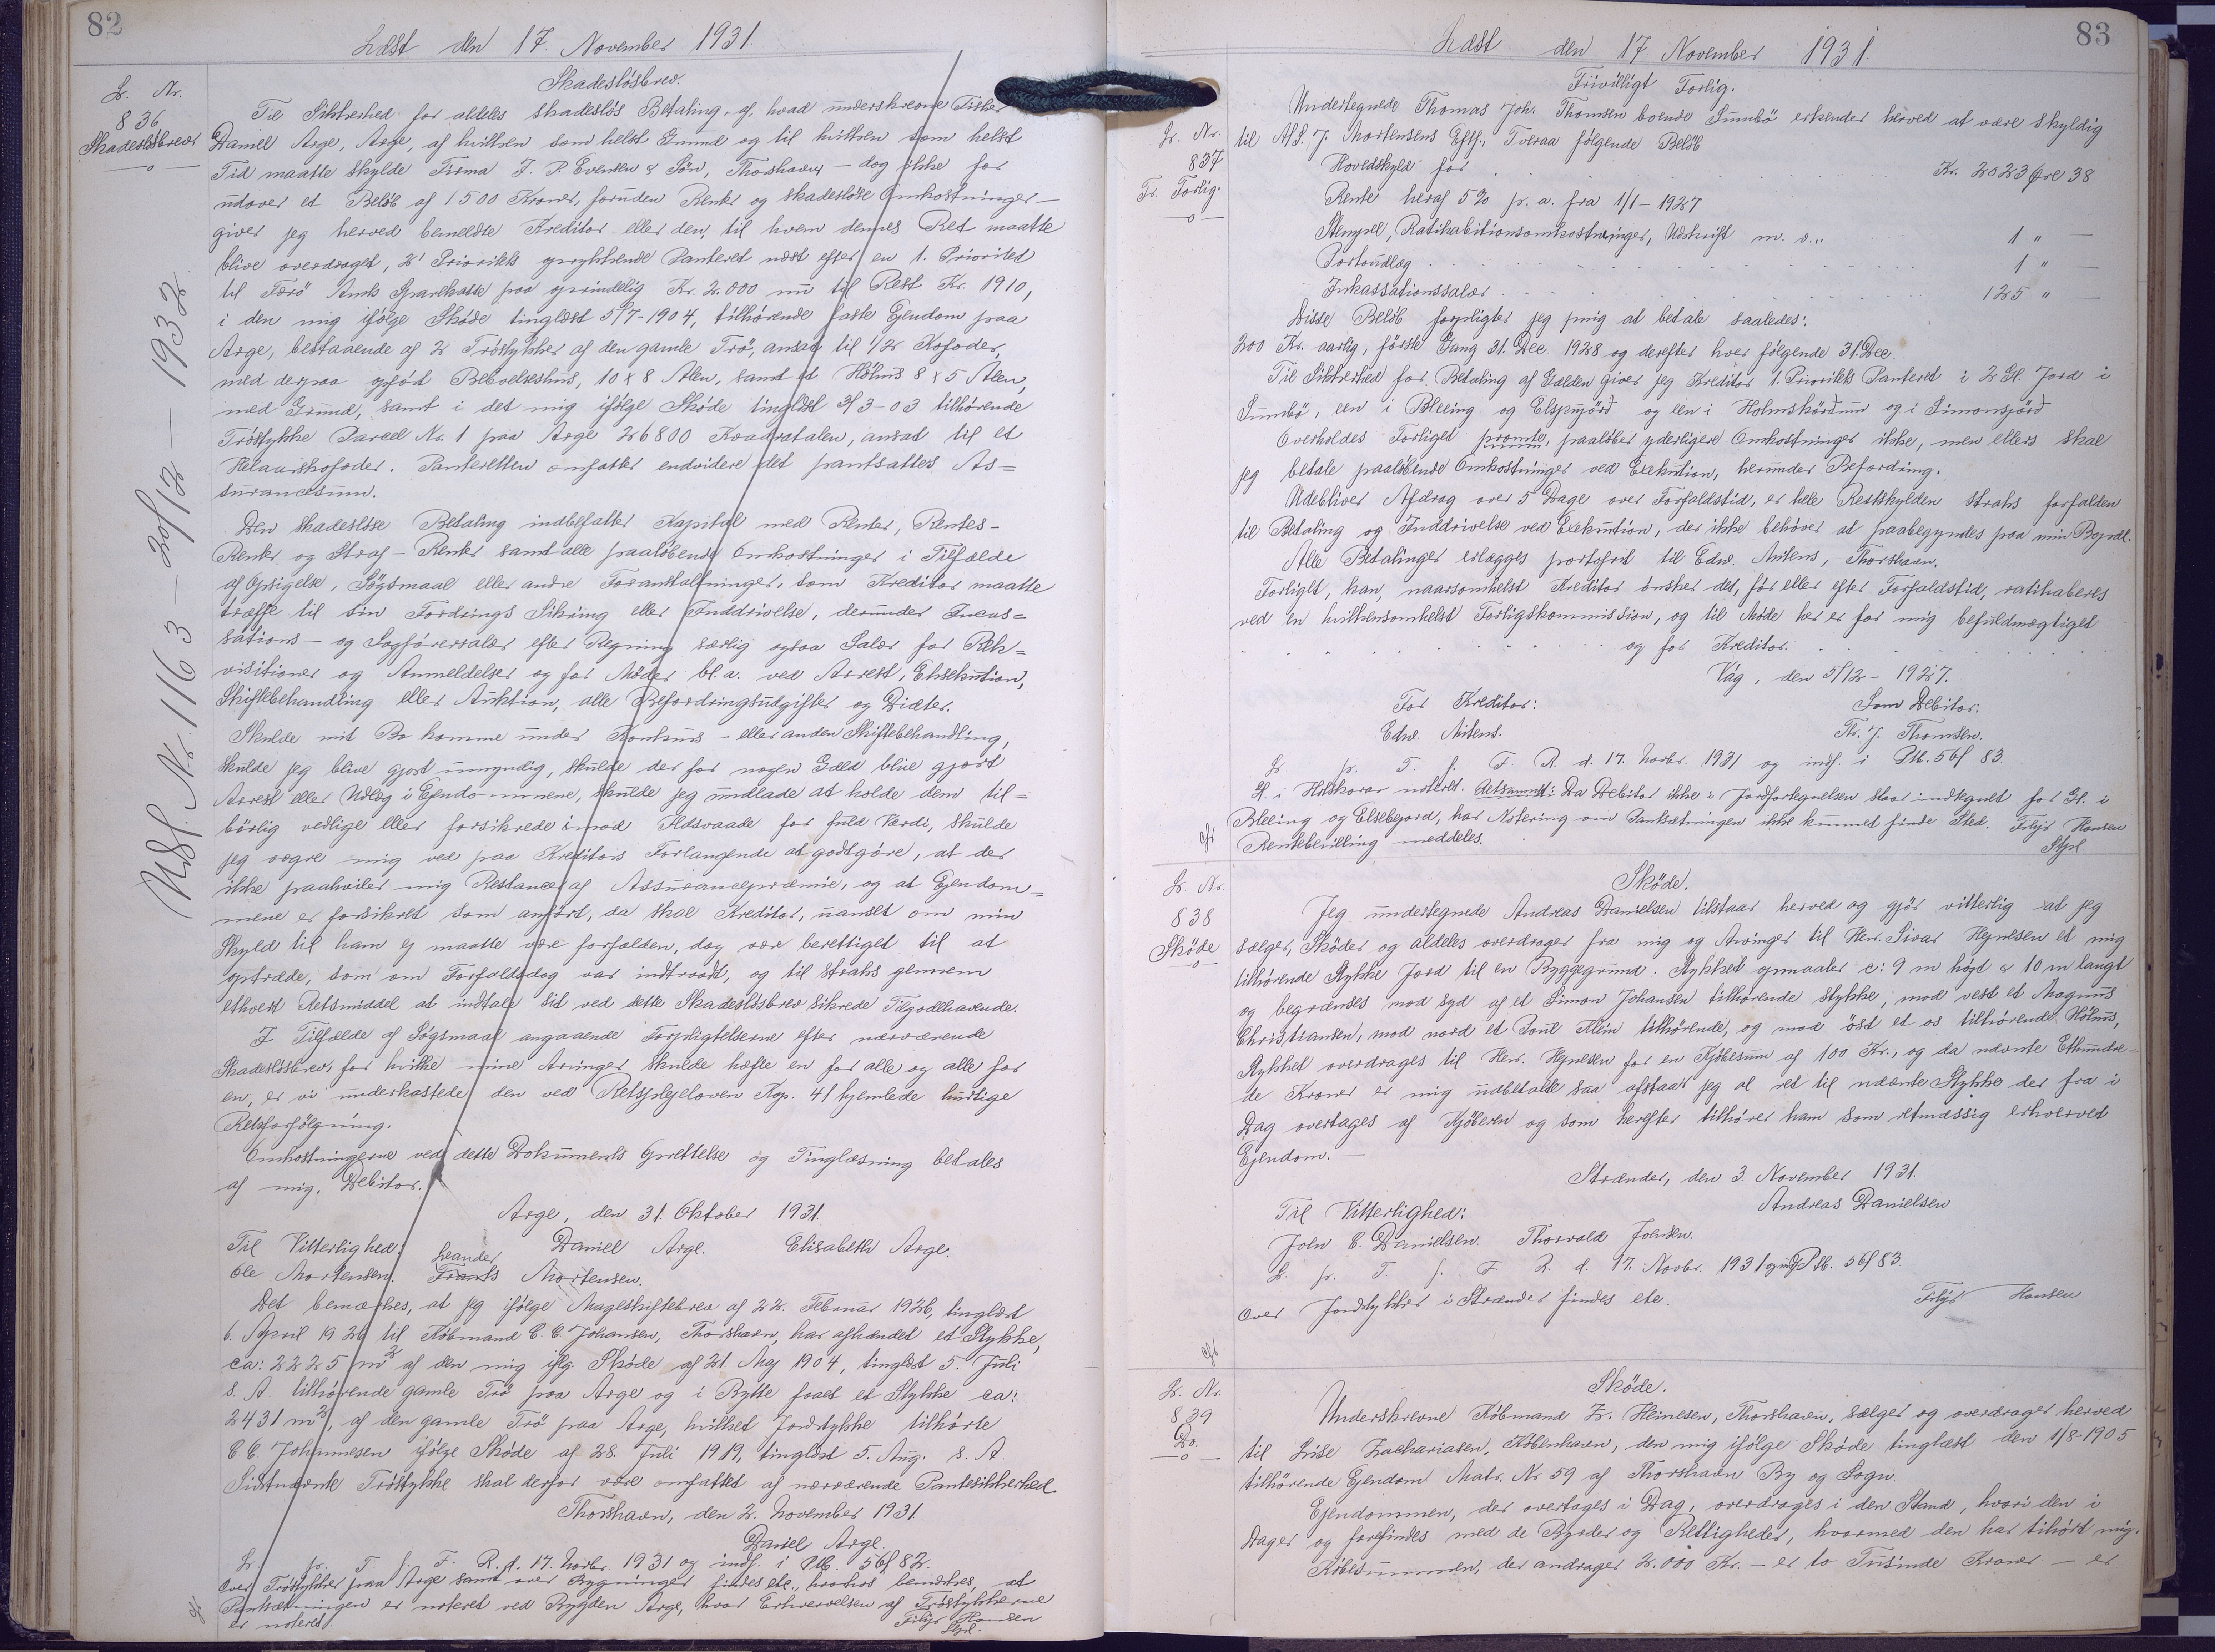 82
Læst den 17. November 1931.
Skadesløsbrev.
L. Nr.
836
Skadesløsbrev
Til Sikkerhed for aldeles skadesløs Betaling af, hvad underskrevne Fisker
Daniel Arge, Arge, af hvilken som helst Grund og til hvilken som helst
Tid maatte skylde Firma J. P. Evensen & Søn, Thorshavn – dog ikke for
udover et Beløb af 1500 Kroner, foruden Renter og skadesløse Omkostninger –
giver jeg herved bemeldte Kreditor eller den, til hvem dennes Ret maatte
blive overdraget, 2' Prioritets oprykkende Panteret næst efter en 1. Prioritet
til Færø Amts Sparekasse paa oprindelig Kr. 2.000 nu til Rest Kr. 1910,
i den mig ifølge Skøde tinglæst 5/7-1904, tilhørende faste Ejendom paa
Arge, bestaaende af 2 Trøstykker af den gamle Trø, ansat til 1/2 Kofoder,
med derpaa opført Beboelseshus, 10 x 8 Alen, samt et Høhus 8 x 5 Alen,
med Grund, samt i det mig ifølge Skøde tinglæst 3/3-03 tilhørende
Trøstykke Parcel Nr. 1 paa Arge 26800 Kvadratalen, ansat til et
Helaarskofoder. Panteretten omfatter endvidere det pantsattes As=
surancesum.
Den skadesløse Betaling indbefatter Kapital med Renter, Rentes-
Renter og Straf-Renter samt alle paaløbende Omkostninger i Tilfælde
af Opsigelse, Søgsmaal eller andre Foranstaltninger, som Kreditor maatte
træffe til sin Fordrings Sikring eller Inddrivelse, derunder Incas=
sations- og Sagførersalær efter Regning særlig ogsaa Salær for Rek=
visitioner og Anmeldelser og for Møder bl. a. ved Arrest, Eksekution,
Skiftebehandling eller Auktion, alle Befordringsudgifter og Diæter.
Skulde mit Bo komme under Konkurs- eller anden Skiftebehandling,
skulde jeg blive gjort umyndig, skulde der for nogen Gæld blive gjort
Arrest eller Udlæg i Ejendommene, skulde jeg undlade at holde dem til=
børlig vedlige eller forsikrede imod Ildsvaade for fuld Værdi, skulde
jeg vægre mig ved paa Kreditors Forlangende at godtgøre, at der
ikke paahviler mig Restancer af Assurancepræmie, og at Ejendom=
mene er forsikret som anført, da skal Kreditor, uanset om min
Skyld til ham ej maatte være forfalden, dog være berettiget til at
optræde, som om Forfaldsdag var indtraadt, og til straks gennem
ethvert Retsmiddel at indtale sit ved dette Skadesløsbrev sikrede Tilgodehavende.
I Tilfælde af Søgsmaal angaaende Forpligtelserne efter nærværende
Skadesløsbrev, for hvilke mine Arvinger skulde hæfte en for alle og alle for
en, er vi underkastede den ved Retsplejeloven Kap. 41 hjemlede hurtige
Retsforfølgning.
Omkostningerne ved dette Dokuments Oprettelse og Tinglæsning betales
af mig, Debitor.
Arge, den 31. Oktober 1931.
Til Vitterlighed: Daniel Arge. Elisabeth Arge.
Leander
Ole Mortensen. Frants Mortensen.
Det bemærkes, at jeg ifølge Mageskiftebrev af 22. Februar 1926, tinglæst
6. April 1926 til Købmand C. C. Johansen, Thorshavn, har afhændet et Stykke,
ca: 2225 m² af den mig iflg. Skøde af 21. Maj 1904, tinglæst 5. Juli
s. A. tilhørende gamle Trø paa Arge og i Bytte faaet et Stykke ca:
2431 m², af den gamle Trø paa Arge, hvilket Jordstykke tilhørte
C. C. Johannesen ifølge Skøde af 28. Juli 1919, tinglæst 5. Aug. s. A.
Sidstnævnte Trøstykke skal derfor være omfattet af nærværende Pantesikkerhed.
Thorshavn, den 2. November 1931
Daniel Arge.
L. p. T. f. F. R. d. 17. Novbr. 1931 og indf. i Ptb. 56f 82.
Over Trøstykker paa Arge samt over Bygninger findes etc., hvorhos bemærkes, at
Pantsætningen er noteret ved Bygden Arge, hvor Erhvervelsen af Trøstykkerne
er noteret. Filip Hansen
Stpl.
Udsl. Nr. 1163 – 20/12 – 1932
83
Læst den 17 November 1931.
Frivilligt Forlig.
L. Nr.
837
Fr. Forlig.
Undertegnede Thomas Joh. Thomsen boende Sumbø erkender herved at være skyldig
til A/S. J. Mortensens Eftf., Tveraa følgende Beløb
Hovedskyld for Kr. 2023 Øre 38
Rente heraf 5% p. a. fra 1/1-1927
Stempel, Ratihabitionsomkostninger, Udskrift m. v. 1 "
Portoudlæg 1 "
Inkassationssalær 125 "
Disse Beløb forpligter jeg mig at betale saaledes:
200 Kr. aarlig, første Gang 31. Dec. 1928 og derefter hver følgende 31. Dec.
Til Sikkerhed for Betaling af Gælden giver jeg Kreditor 1. Prioritets Panteret i 2 Gl. Jord i
Sumbø, een i Bleeing og Elspujörd og een i Holmskørdum og i Simonsjørd
Overholdes Forliget promte, paaløber yderligere Omkostninger ikke, men ellers skal
jeg betale paaløbende Omkostninger ved Exekution, herunder Befordring.
Udebliver Afdrag over 5 Dage over Forfaldstid, er hele Restskylden straks forfalden
til Betaling og Inddrivelse ved Exekution, der ikke behøver at paabegyndes paa min Bopæl.
Alle Betalinger erlægges portofrit til Edw. Mitens, Thorshavn.
Forliget, kan, naarsomhelst Kreditor ønsker det, før eller efter Forfaldstid, ratihaberes
ved en hvilkensomhelst Forligskommission, og til Møde her er for mig befuldmægtiget
og for Kreditor.
Våg, den 5/12-1927.
For Kreditor: Som Debitor:
Edw. Mitens. Th. J. Thomsen.
L. p. T. f. F. R. d. 17. Novbr. 1931 og indf. i Ptb. 56f 83.
Gl. i Holskorar noteret. Retsanm.: Da Debitor ikke i Jordfortegnelsen staar indtegnet for Gl. i
Bleeing og Elsebgjord, har Notering om Pantsætningen ikke kunnet finde Sted. Filip Hansen
Rentebevilling meddeles. Stpl
Skøde.
L. Nr.
838
Skøde
Jeg undertegnede Andreas Danielsen tilstaar herved og gjör vitterlig at jeg
sælger, Skøder og aldeles overdrager fra mig og Arvinger til Herr. Sivar Hejnesen et mig
tilhørende Stykke Jord til en Byggegrund. Stykket opmaaler c: 9 m højd & 10 m langt
og begrænses mod syd af et Simon Johansen tilhørende stykke, mod vest et Magnus
Christiansen, mod nord et Poul Klein tilhørende, og mod öst et os tilhørende Høhus,
Stykket overdrages til Herr. Hejnesen for en Kjöbesum af 100 Kr., og da nævnte Ethundre=
de Kroner er mig udbetalde saa afstaar jeg al ret til nævnte Stykke der fra i
Dag overtages af Kjöberen og som herefter tilhører ham som retmæssig erhverved
Ejendom. –
Strænder, den 3. November 1931.
Til Vitterlighed: Andreas Danielsen
John C. Danielsen. Thorvald Joensen.
L. p. T. f. F. R. d. 17. Novbr. 1931 og indf. Ptb. 56f 83.
Over Jordstykker i Strænder findes etc. Filip Hansen
Skøde.
L. Nr.
839
Do.
Underskrevne Købmand Z. Heinesen, Thorshavn, sælger og overdrager herved
til Lise Zachariasen, København, den mig ifølge Skøde tinglæst den 1/8-1905
tilhørende Ejendom Matr. Nr. 59 af Thorshavn By og Sogn.
Ejendommen, der overtages i Dag, overdrages i den Stand, hvori den i
Dager og forefindes med de Byrder og Rettigheder, hvormed den har tilhørt mig.
Købesummen, der andrager 2.000 Kr. – er to Tusinde Kroner – er